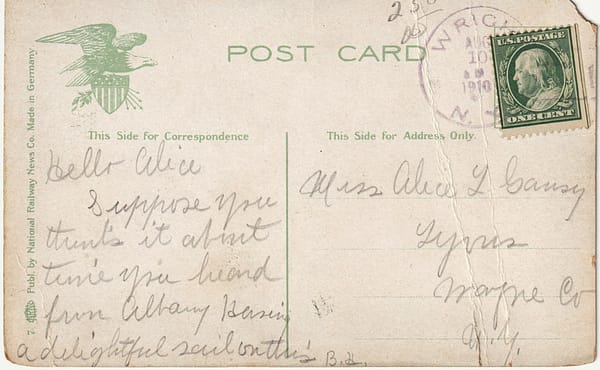 250
POST CARD
WRIGH
AUG
10
AM
1910
N.Y.
U.S. POSTAGE
ONE CENT
This Side for Correspondence
This Side for Address Only.
Hello Alice
Suppose you
think's it about
time you heard
from Albany Having
a delightful sail on this B.H.
Miss Alice L
Lyons
Wayne Co
N.Y.
7. Publ. by National Railway News Co. Made in Germany